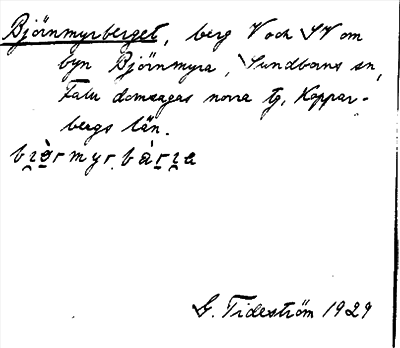 Björnmyrberget, berg V och SV om
byn Björnmyra, Sundborns sn,
Falu domsagas norra tg, Koppar-
bergs län.
G. Tideström 1929